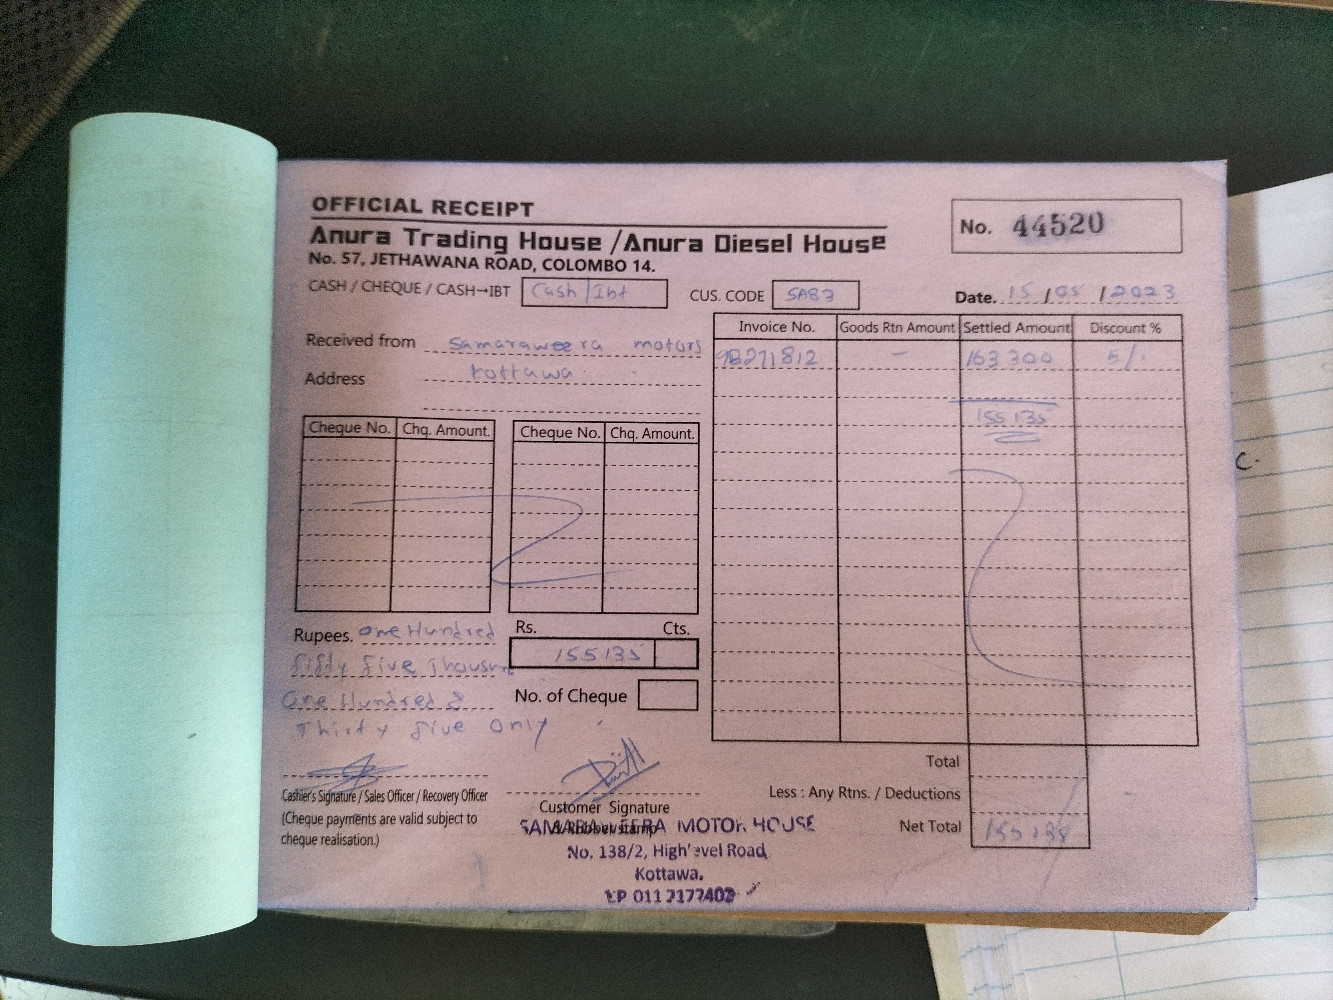 OFFICIAL RECEIPT
Anura Trading House /Anura Diesel House
No. 57, JETHAWANA ROAD, COLOMBO 14.
No. 44520
CASH / CHEQUE / CASH→IBT Cash/Ibt
CUS. CODE SA87
Date. 15/05/2023
Received from Samaraweera motors
Address kottawa
Invoice No. Goods Rtn Amount Settled Amount Discount %
9B271812 - 163300 5/.
155135
Cheque No. Chq. Amount. Cheque No. Chq. Amount.
Rupees. one Hundred
fifty five Thousand
One Hundred &
Thirty five only
Rs. Cts.
155135
No. of Cheque
Cashier's Signature / Sales Officer / Recovery Officer
(Cheque payments are valid subject to
cheque realisation.)
Customer Signature
& Rubber stamp
SAMARAWEERA MOTOR HOUSE
No. 138/2, High'evel Road,
Kottawa.
TP 011 2177402
Total
Less : Any Rtns. / Deductions
Net Total 155135
c.